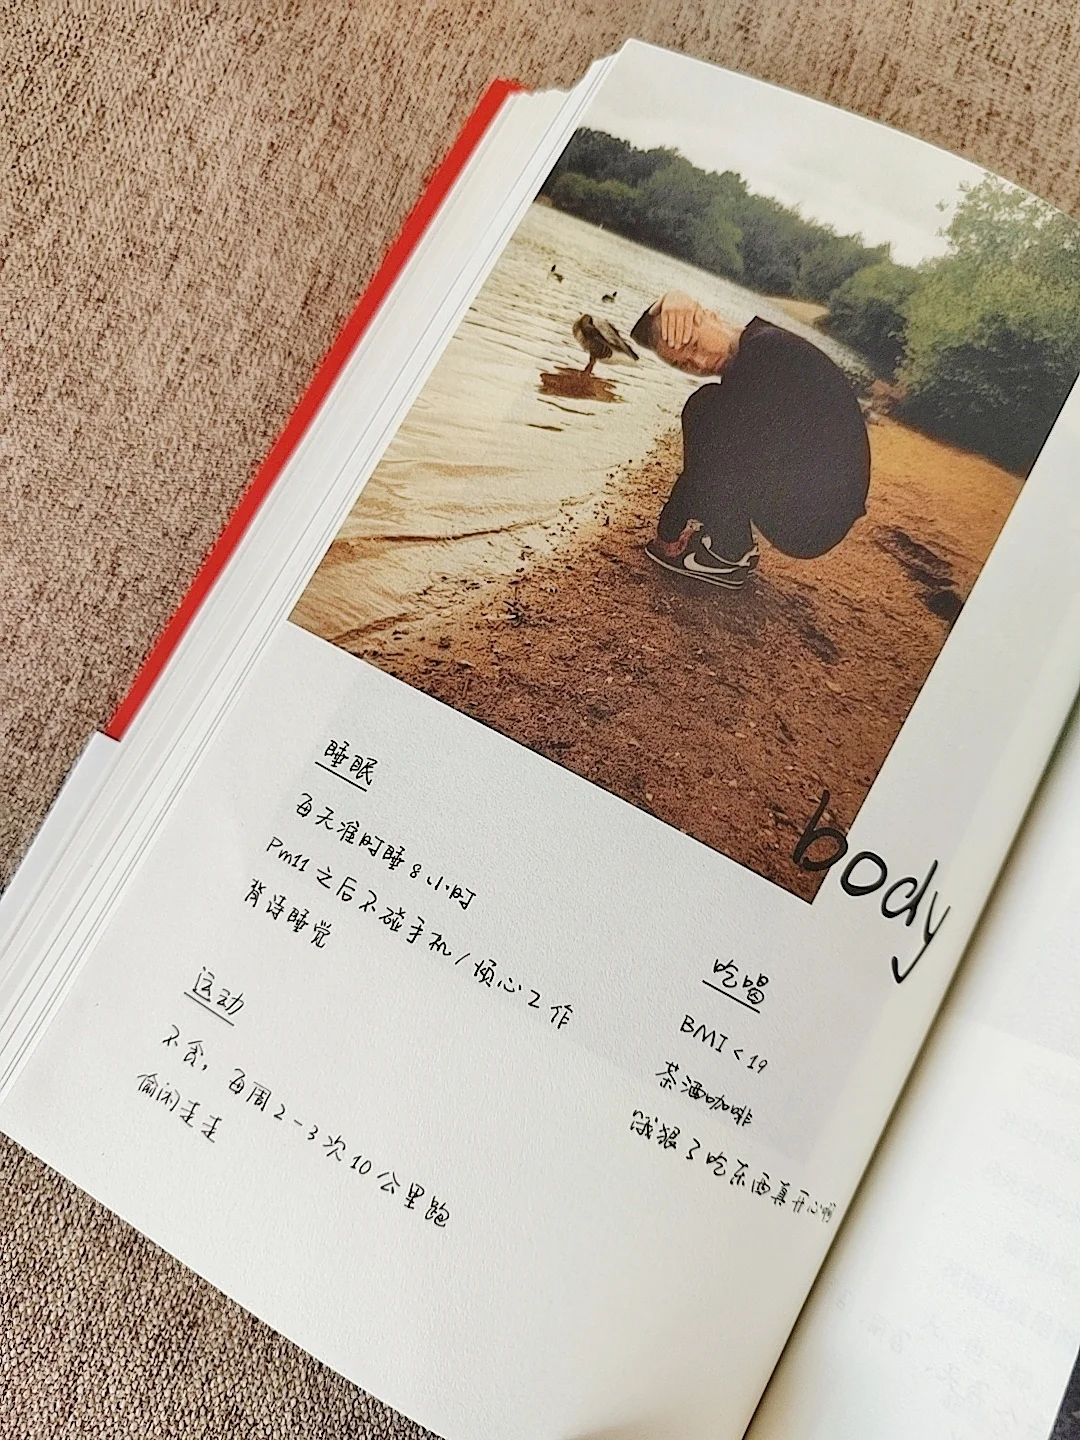 body
睡眠
每天准时睡8小时
Pm11之后不碰手机/烦心工作
背诗睡觉
运动
不贪，每周2-3次10公里跑
偷闲走走
吃喝
BMI<19
茶酒咖啡
饿狠了吃东西真开心啊